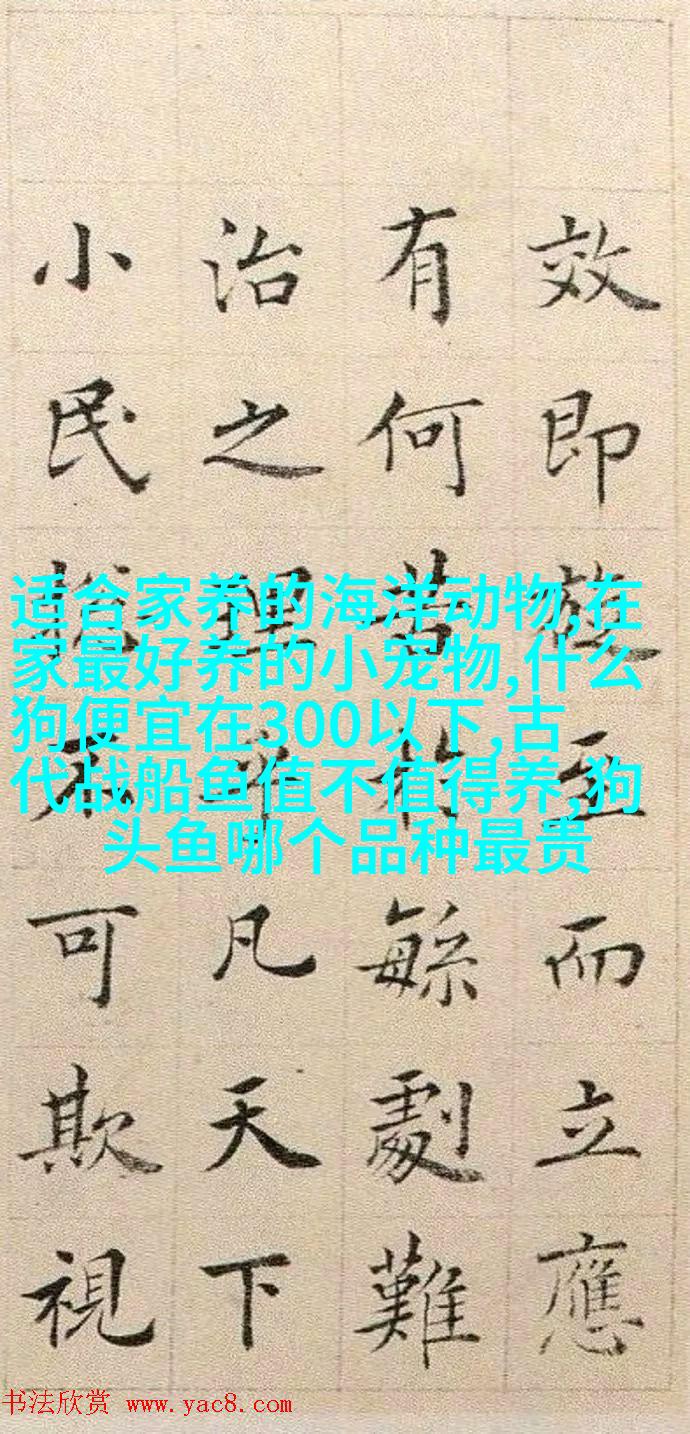 效即至而立應
有何於緐劇難
治之理乎凡天下
小民不可欺視
适合家养的海洋动物,在
家最好养的小宠物,什么
狗便宜在300以下,古
代战船鱼值不值得养,狗
头鱼哪个品种最贵
书法欣赏 www.yac8.com